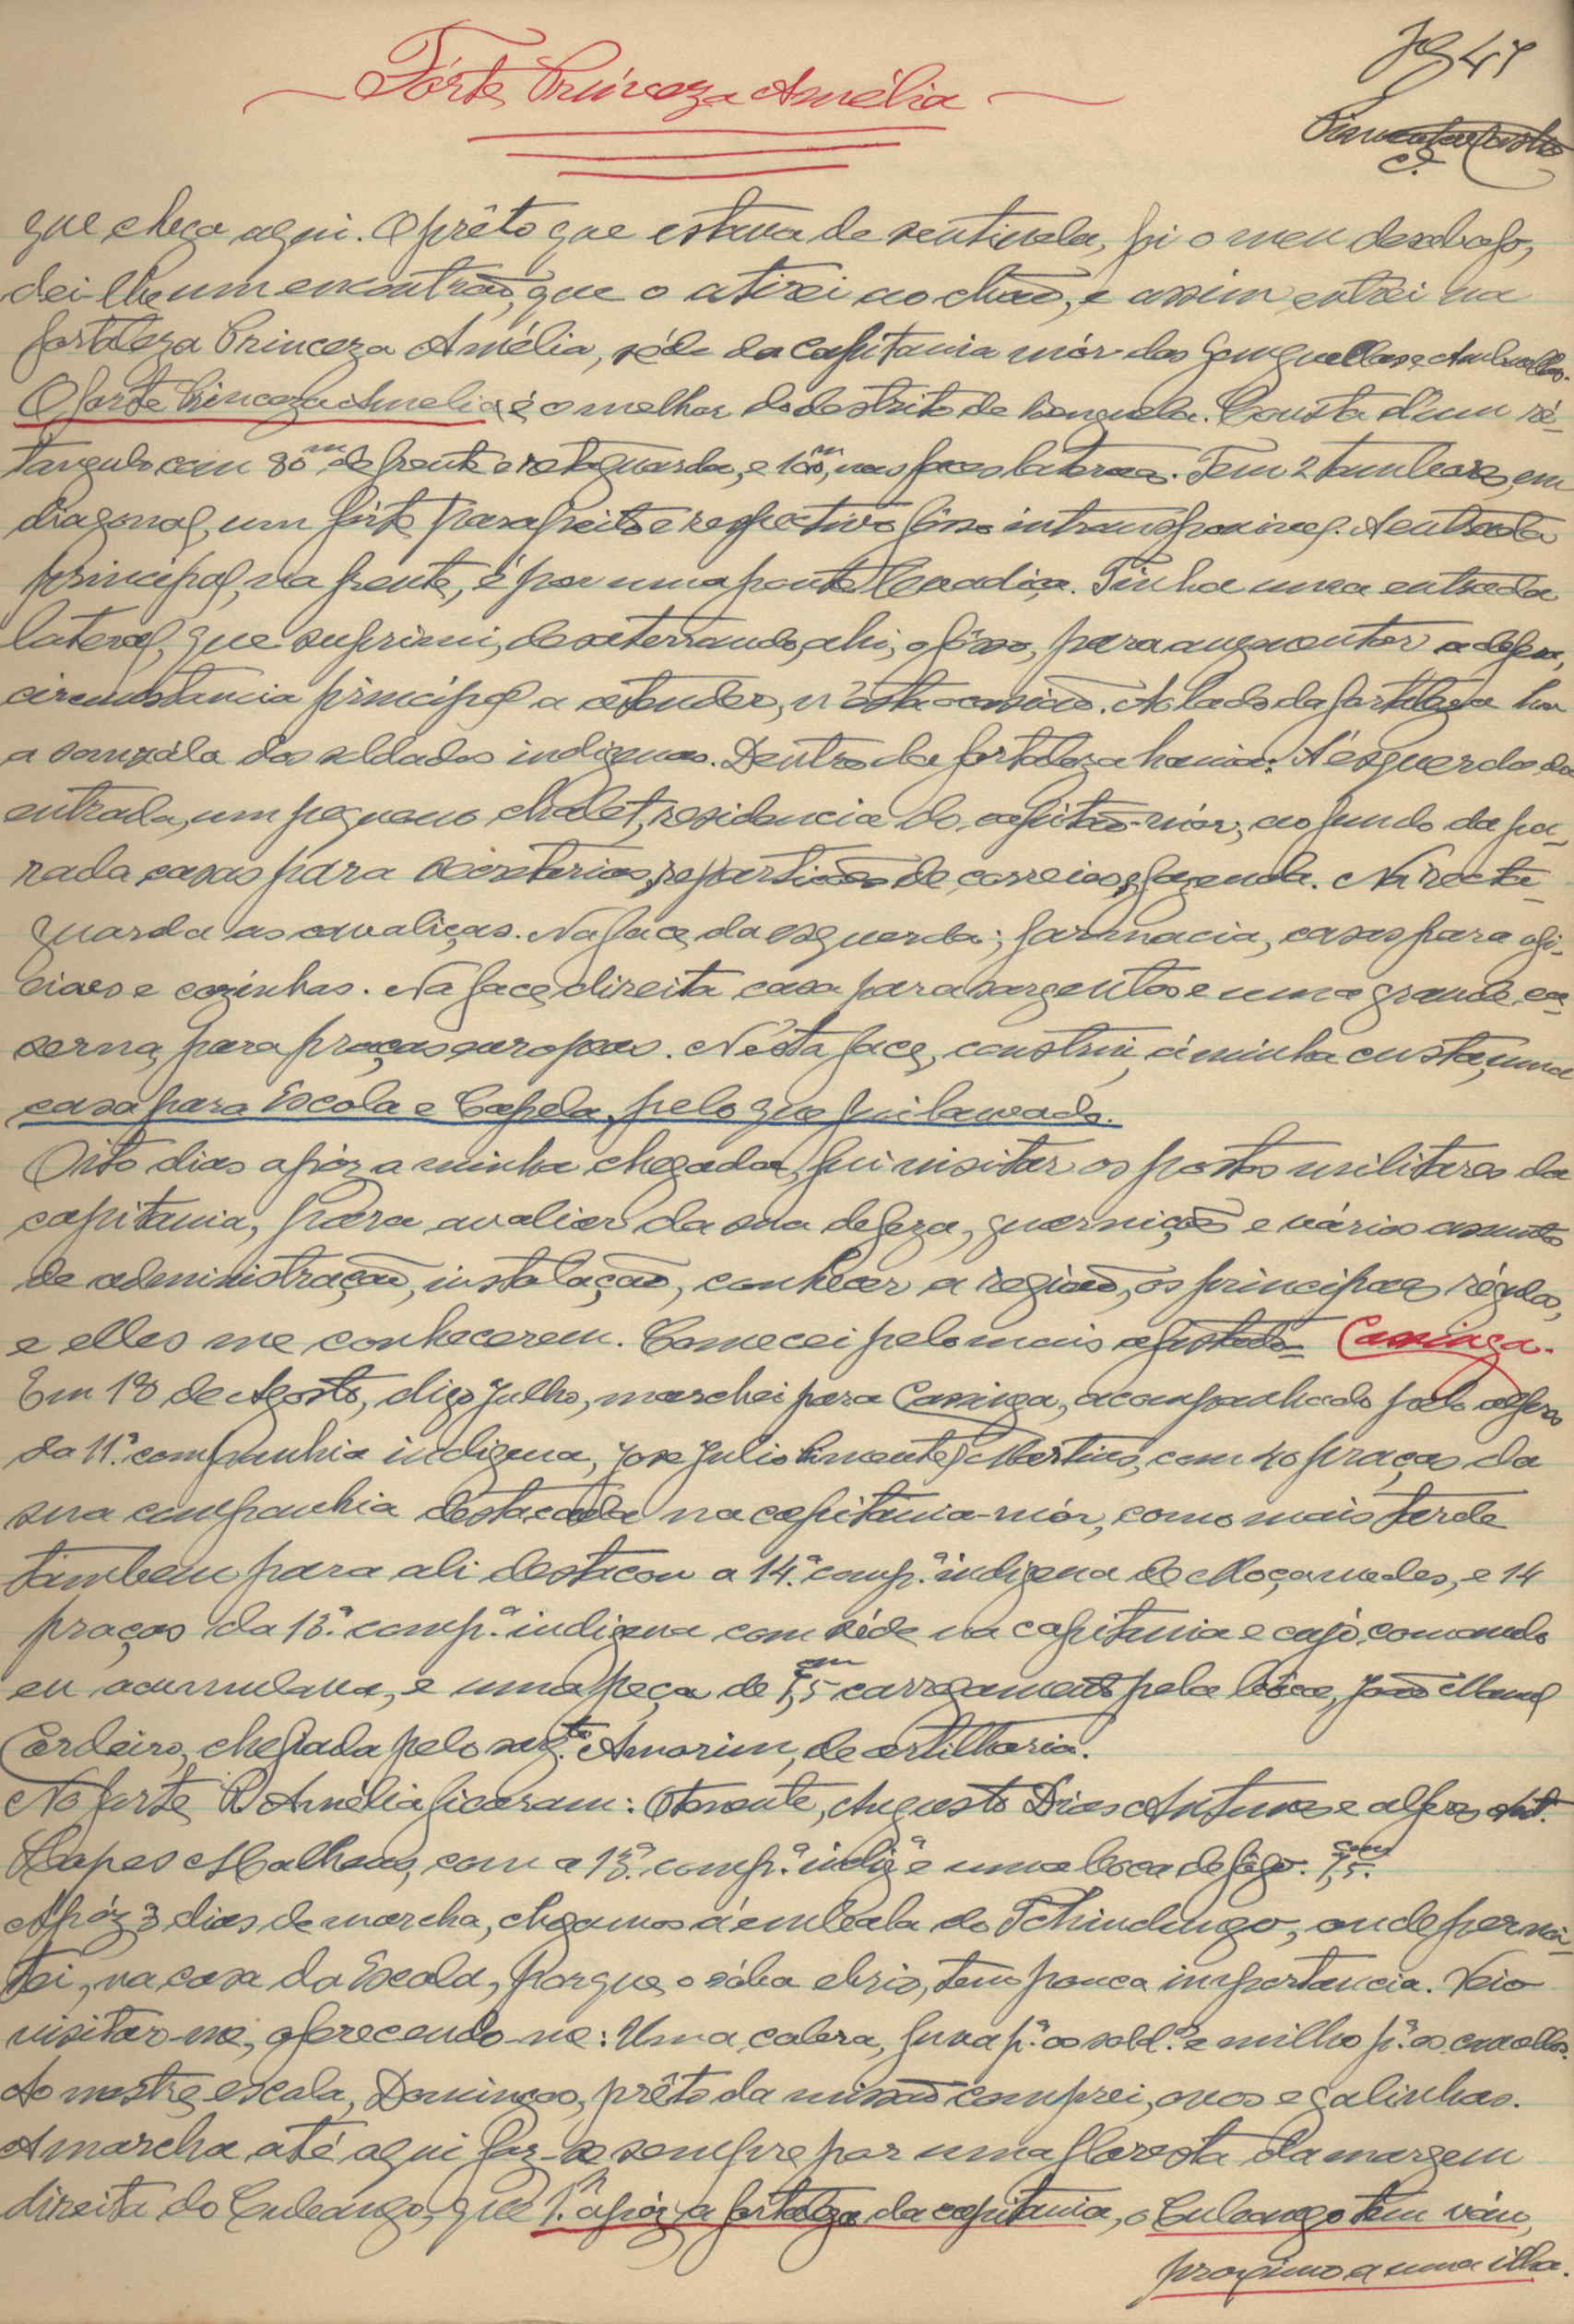 Fg 47
Fórte Princeza Amélia
que chega aqui. O prêto que estava de sentinela, foi o meu desabafo,
dei-lhe um encontrão, que o atirei ao chão, e assim entrei na
fortaleza Princeza Amélia, séde da capitania mór dos Ganguellas e Ambuellas.
O forte Princeza Amelia é o melhor do destrito de Benguela. Consta d'um ré-
tangulo com 80m de frente e retaguarda, e 100m, nas faces lateraes. Tem 2 tambores, em
diagonal, um forte parapeito e respectivo fôsso intransponivel. A entrada
principal, na frente, é por uma ponte levadiça. Tinha uma entrada
lateral, que suprimi, desaterrando, ahi, o fôsso, para augmentar a defesa,
circumstancia principal a atender, n'esta ocasião. Ao lado da fortaleza há
a sanzála dos soldados indigenas. Dentro da fortaleza havia: Á esquerda da
entrada, um pequeno chalet, residencia do capitão-mór; ao fundo da pa-
rada casas para secretarias, repartições de correios, fazenda. Na recta-
guarda as cavaliças. Na face da esquerda; farmacia, casas para ofi-
ciaes e cozinhas. Na face direita casa para sargentos e uma grande ca-
serna, para praças europeas. N'ésta face, construi, á minha custa, uma
casa para Escola e Capela, pelo que fui louvado.
Oito dias apóz a minha chegada, fui visitar os postos militares da
capitania, para avaliar da sua defeza, guarnição e vários assuntos
de administração, instalação, conhecer a região, os principaes régulos,
e elles me conhecerem. Comecei pelo mais afastado= Cassinga.
Em 18 de Agosto, digo Julho, marchei para Cassinga, acompanhado pelo alferes
da 11.ª companhia indigena, José Julio Pimentel Martins, com 40 praças da
sua companhia destacada na capitania-mór, como mais tarde
tambem para ali destacou a 14.ª comp.ª indigena de Moçamedes, e 14
praças da 13.ª comp.ª indigena com séde na capitania e cujo comando
eu acumulava, e uma peça de 7,5 cm carregamento pela bôca, João Manuel
Cordeiro, chefiada pelo sarg.to Amorim, de artilharia.
No forte P. Amélia ficaram: O tenente, Augusto Dias Antunes e alferes Ant.
Lopes Malheus, com a 13.ª comp.ª indig.ª e uma boca de fôgo. 7,5 cm.
Apóz 3 dias de marcha, chegamos á embala do Tchindungo, onde pernoi-
tei, na casa da Escola, porque, o sóba ebrio, tem pouca importancia. Veio
visitar-me, oferecendo-me: Uma cabra, fuva p.ª os sold.os e milho p.ª os cavallos.
Ao mestre escola, Domingos, prêto da missão comprei, ovos e galinhas.
A marcha até aqui faz-se sempre por uma floresta da margem
direita do Cubango, que 1.h apóz a fortaleza da capitania, o Cubango tem váu,
proximo a uma ilha.